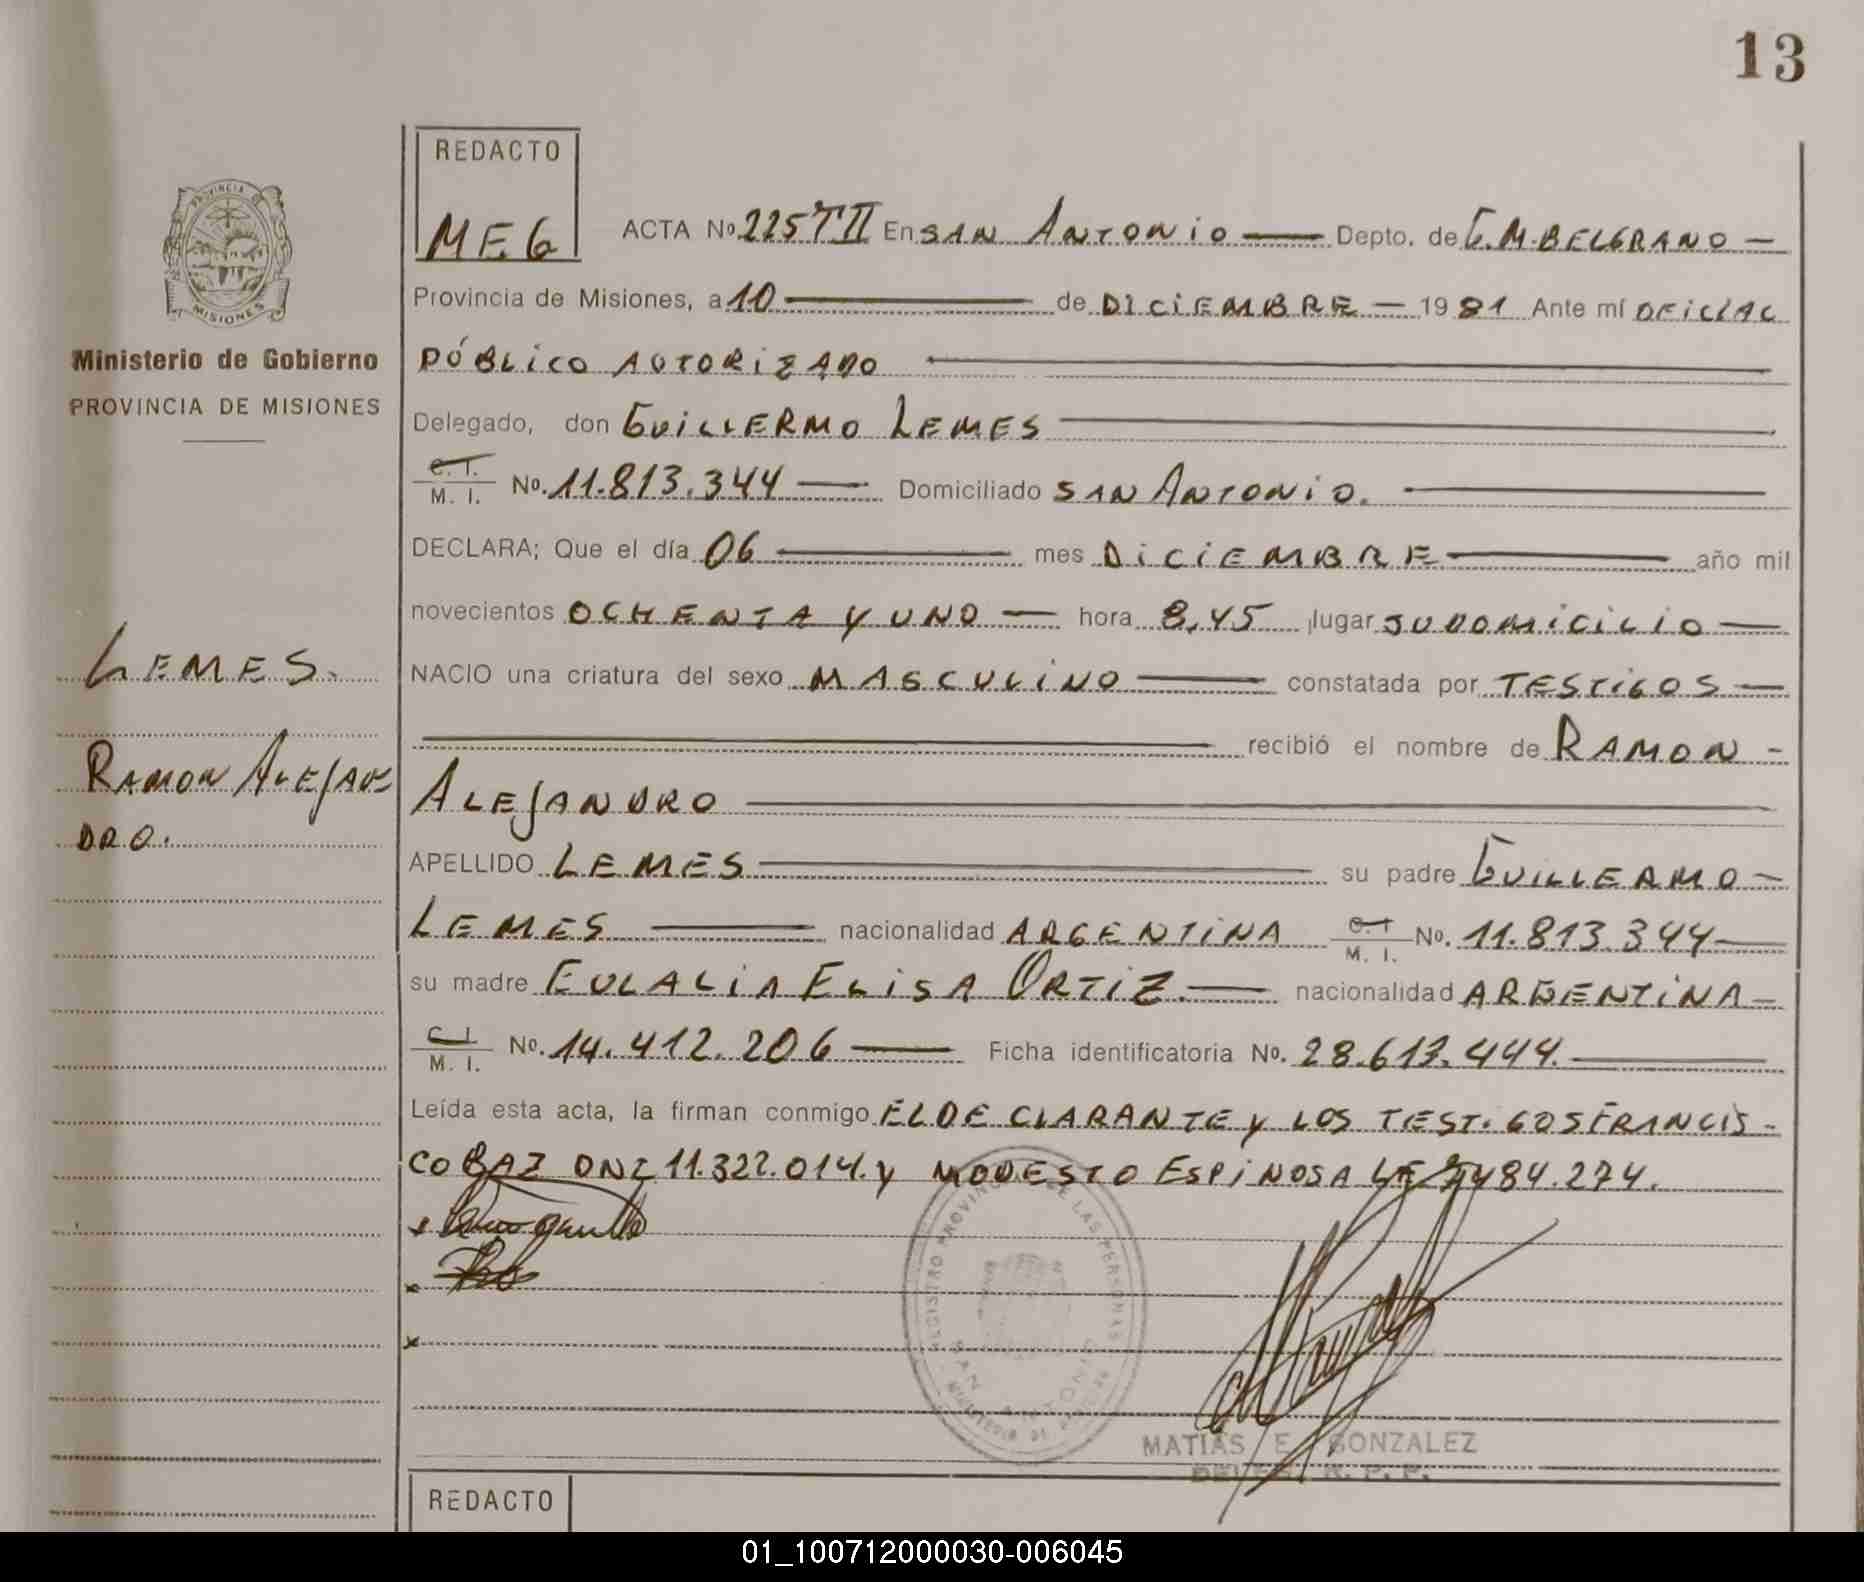 13
REDACTO
MEG
ACTA No 225 T II En SAN ANTONIO Depto. de G.M. BELGRANO
Provincia de Misiones, a 10 de DICIEMBRE 1981 Ante mí OFICIAL
PÚBLICO AUTORIZADO
Delegado, don GUILLERMO LEMES
C. I.
M. I. No. 11.813.344 Domiciliado SAN ANTONIO.
DECLARA; Que el día 06 mes DICIEMBRE año mil
novecientos OCHENTA Y UNO hora 8,45 lugar SU DOMICILIO
NACIO una criatura del sexo MASCULINO constatada por TESTIGOS
recibió el nombre de RAMON
ALEJANDRO
APELLIDO LEMES su padre GUILLERMO
LEMES nacionalidad ARGENTINA C. I. M. I. No. 11.813.344
su madre EULALIA ELISA ORTIZ. nacionalidad ARGENTINA
C. I.
M. I. No. 14.412.206 Ficha identificatoria No. 28.613.444.
Leída esta acta, la firman conmigo EL DECLARANTE Y LOS TESTIGOS FRANCIS-
CO BAZ DNI 11.322.014. Y MODESTO ESPINOSA LE 7484.274.
PROVINCIA DE
MISIONES
Ministerio de Gobierno
PROVINCIA DE MISIONES
LEMES.
RAMON ALEJAN
DRO.
REGISTRO PROVINCIAL DE LAS PERSONAS
SAN ANTONIO
MATIAS E. GONZALEZ
R. P. P.
REDACTO
01_100712000030-006045